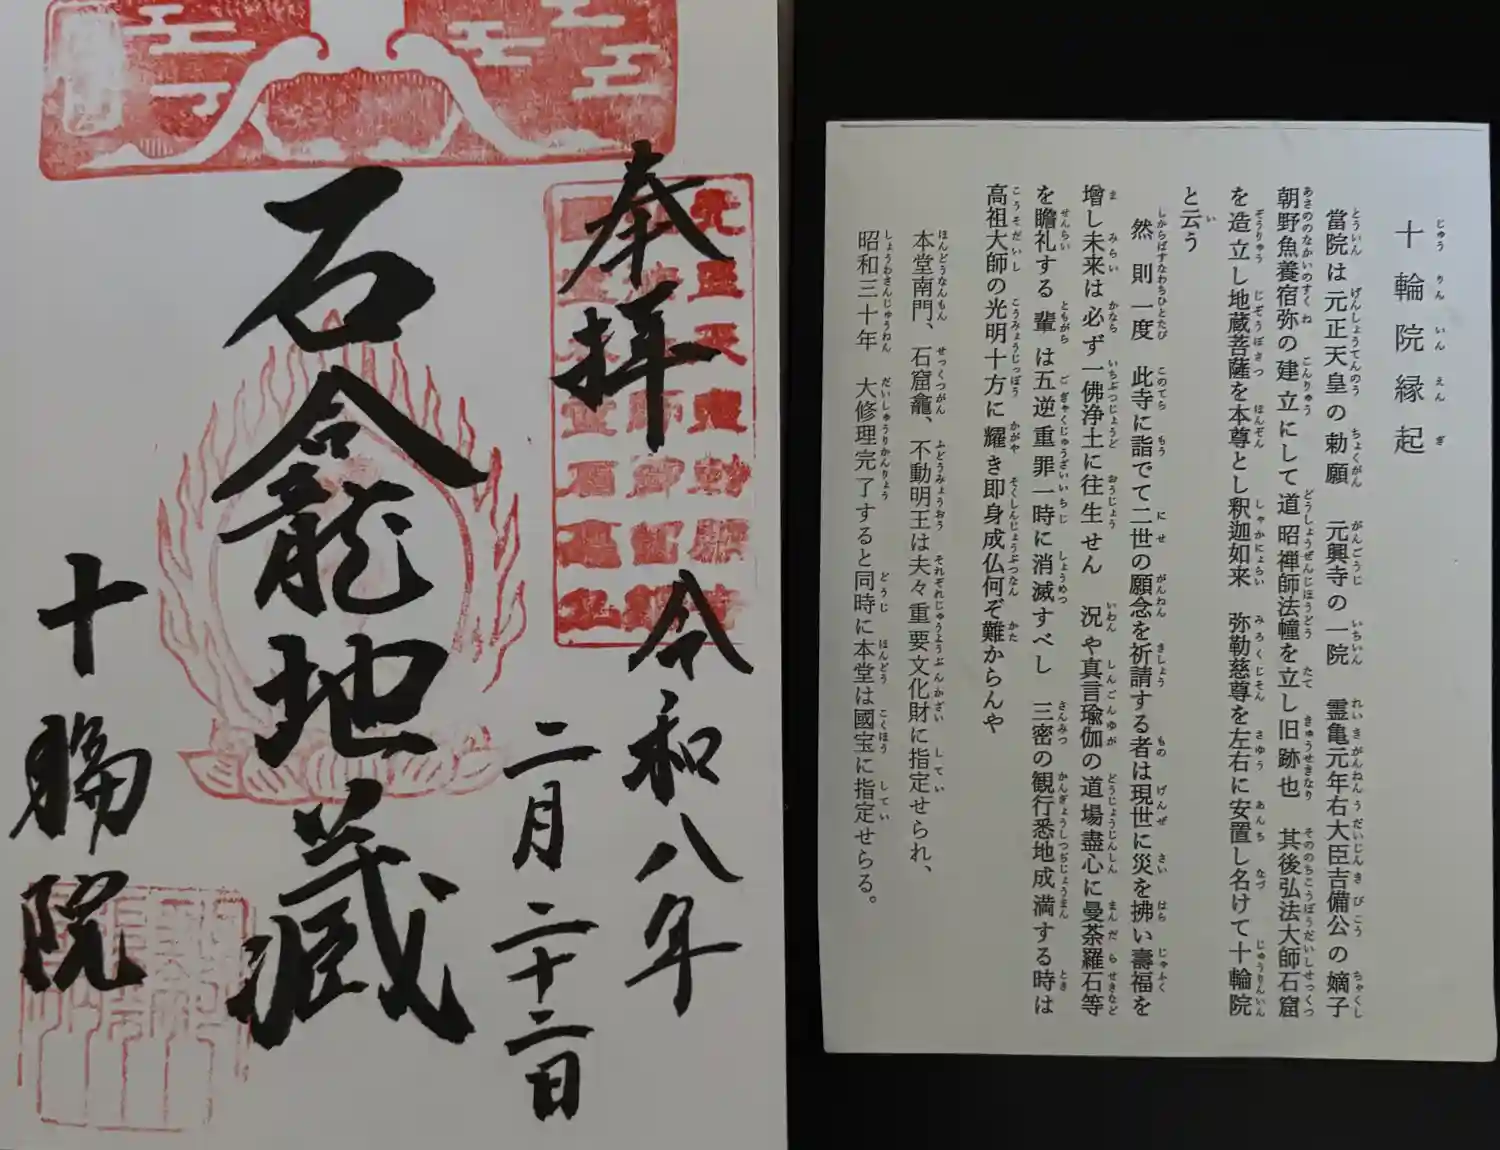 奉拝
令和八年
二月二十二日
石龕地蔵
十輪院
十輪院縁起
當院は元正天皇の勅願 元興寺の一院 霊亀元年右大臣吉備公の嫡子
朝野魚養宿弥の建立にして道昭禅師法幢を立し旧跡也 其後弘法大師石窟
を造立し地蔵菩薩を本尊とし釈迦如来 弥勒慈尊を左右に安置し名けて十輪院
と云う
然則一度 此寺に詣でて二世の願念を祈請する者は現世に災を拂い壽福を
増し未来は必ず一佛浄土に往生せん 況や真言瑜伽の道場盡心に曼荼羅石等
を瞻礼する輩は五逆重罪一時に消滅すべし 三密の観行悉地成満する時は
高祖大師の光明十方に耀き即身成仏何ぞ難からんや
本堂南門、石窟龕、不動明王は夫々重要文化財に指定せられ、
昭和三十年 大修理完了すると同時に本堂は國宝に指定せらる。